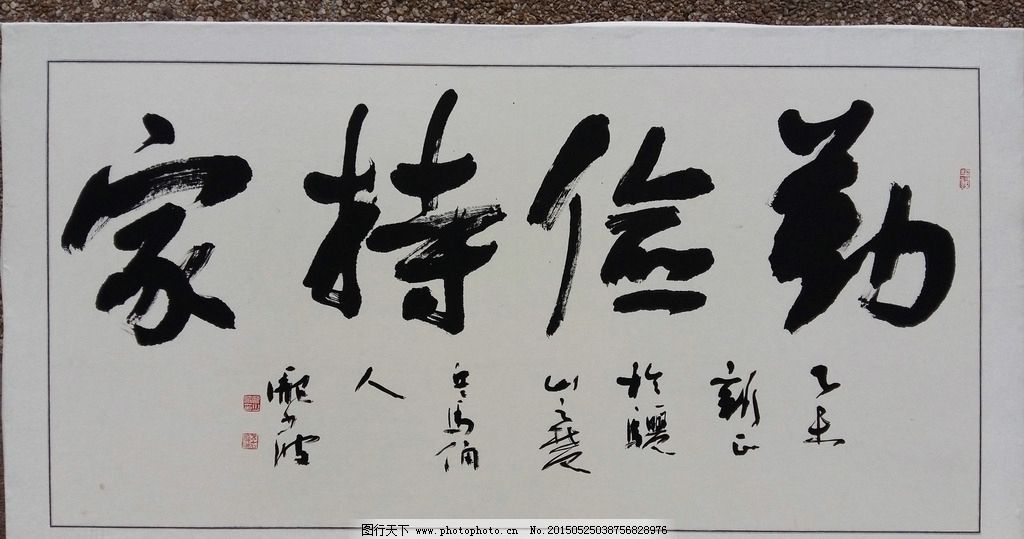 勤俭持家
乙未
新正
於驪
山之麓
兵馬俑
人
图行天下 www.photophoto.cn No.20150525038756828976